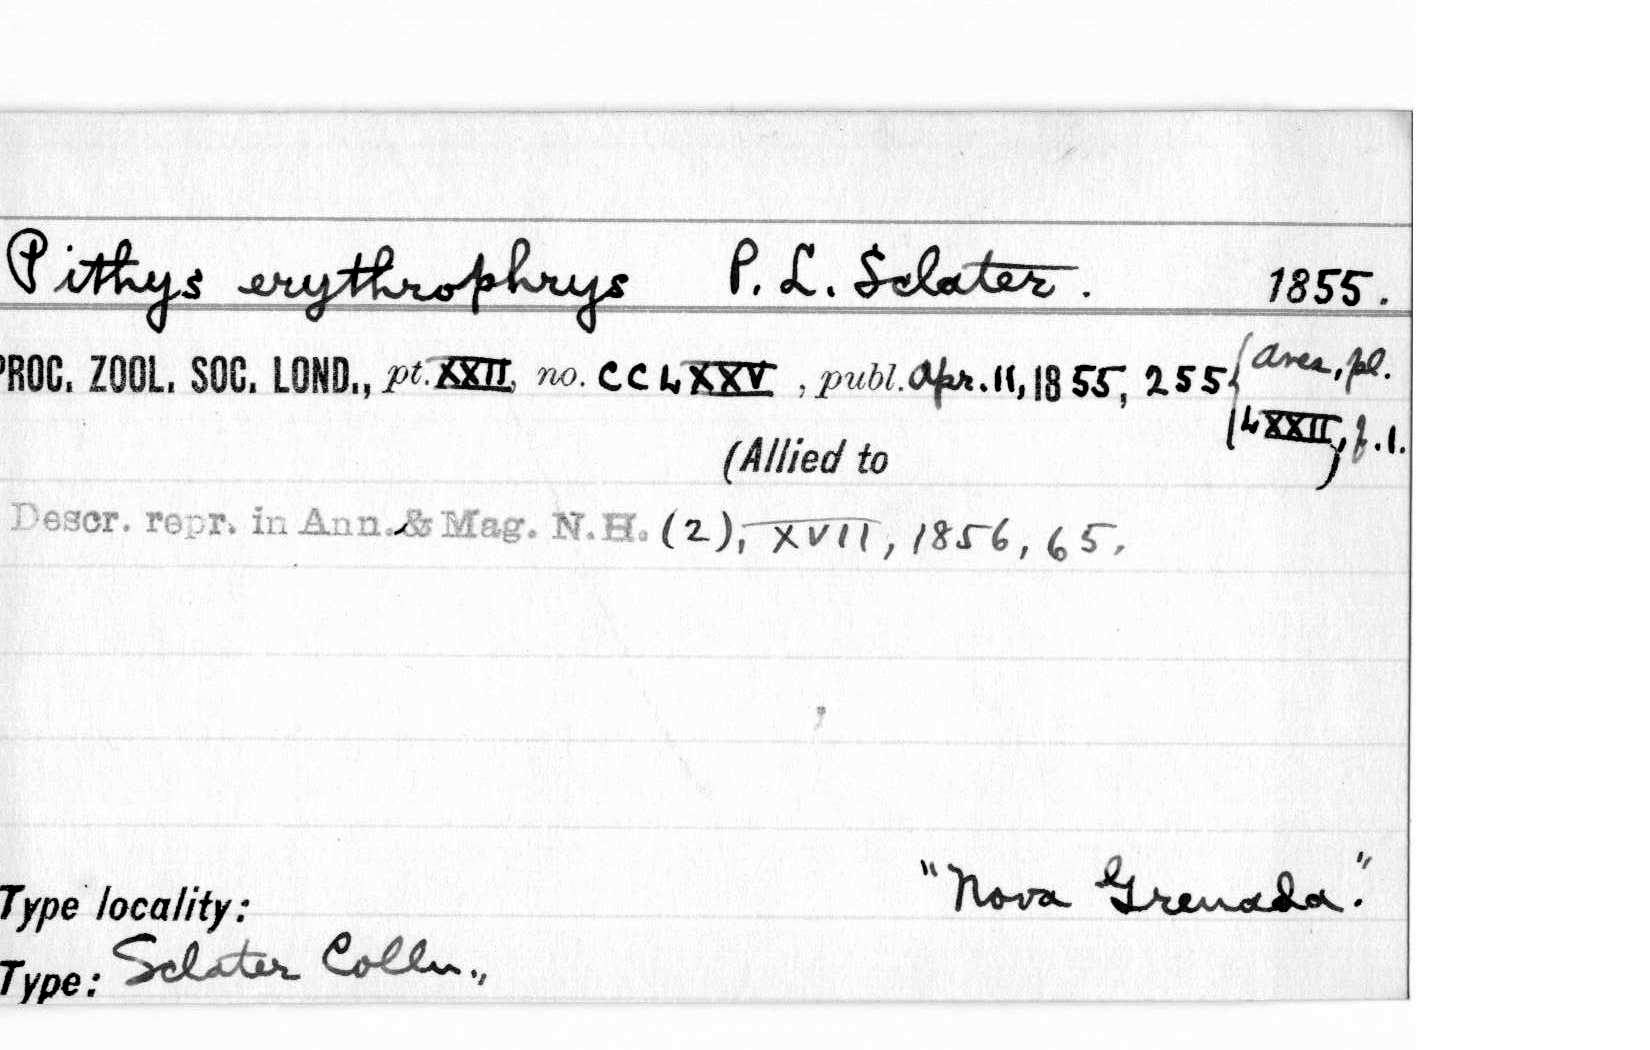 Pithys erythrophrys P. L. Sclater. 1855.
PROC. ZOOL. SOC. LOND., pt. XXII, no. CCLXXV, publ. Apr. 11, 1855, 255 { Aves, pl.
LXXII, f. 1.
(Allied to )
Descr. repr. in Ann. & Mag. N.H. (2), XVII, 1856, 65.
"Nova Grenada."
Type locality:
Type: Sclater Colln.,